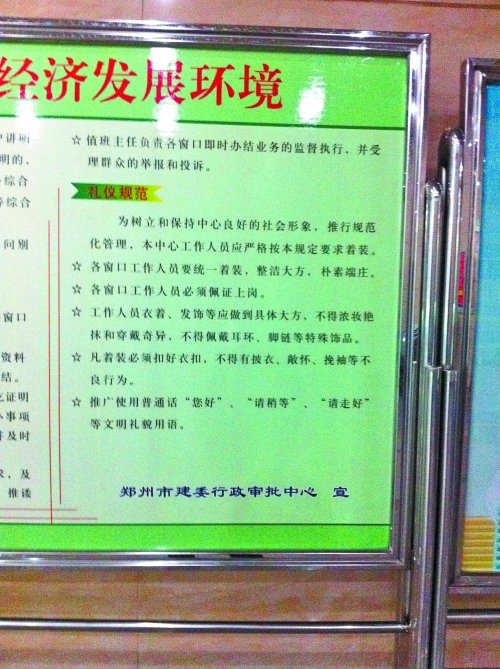 经济发展环境
☆ 值班主任负责各窗口即时办结业务的监督执行，并受
理群众的举报和投诉。
礼仪规范
为树立和保持中心良好的社会形象，推行规范
化管理，本中心工作人员应严格按本规定要求着装。
☆ 各窗口工作人员要统一着装，整洁大方，朴素端庄。
☆ 各窗口工作人员必须佩证上岗。
☆ 工作人员衣着、发饰等应做到具体大方，不得浓妆艳
抹和穿戴奇异，不得佩戴耳环、脚链等特殊饰品。
☆ 凡着装必须扣好衣扣，不得有披衣、敞怀、挽袖等不
良行为。
☆ 推广使用普通话“您好”、“请稍等”、“请走好”
等文明礼貌用语。
郑州市建委行政审批中心 宣
讲明
明的、
综合
综合
问别
窗口
资料
结。
证明
事项
及时
及
推诿